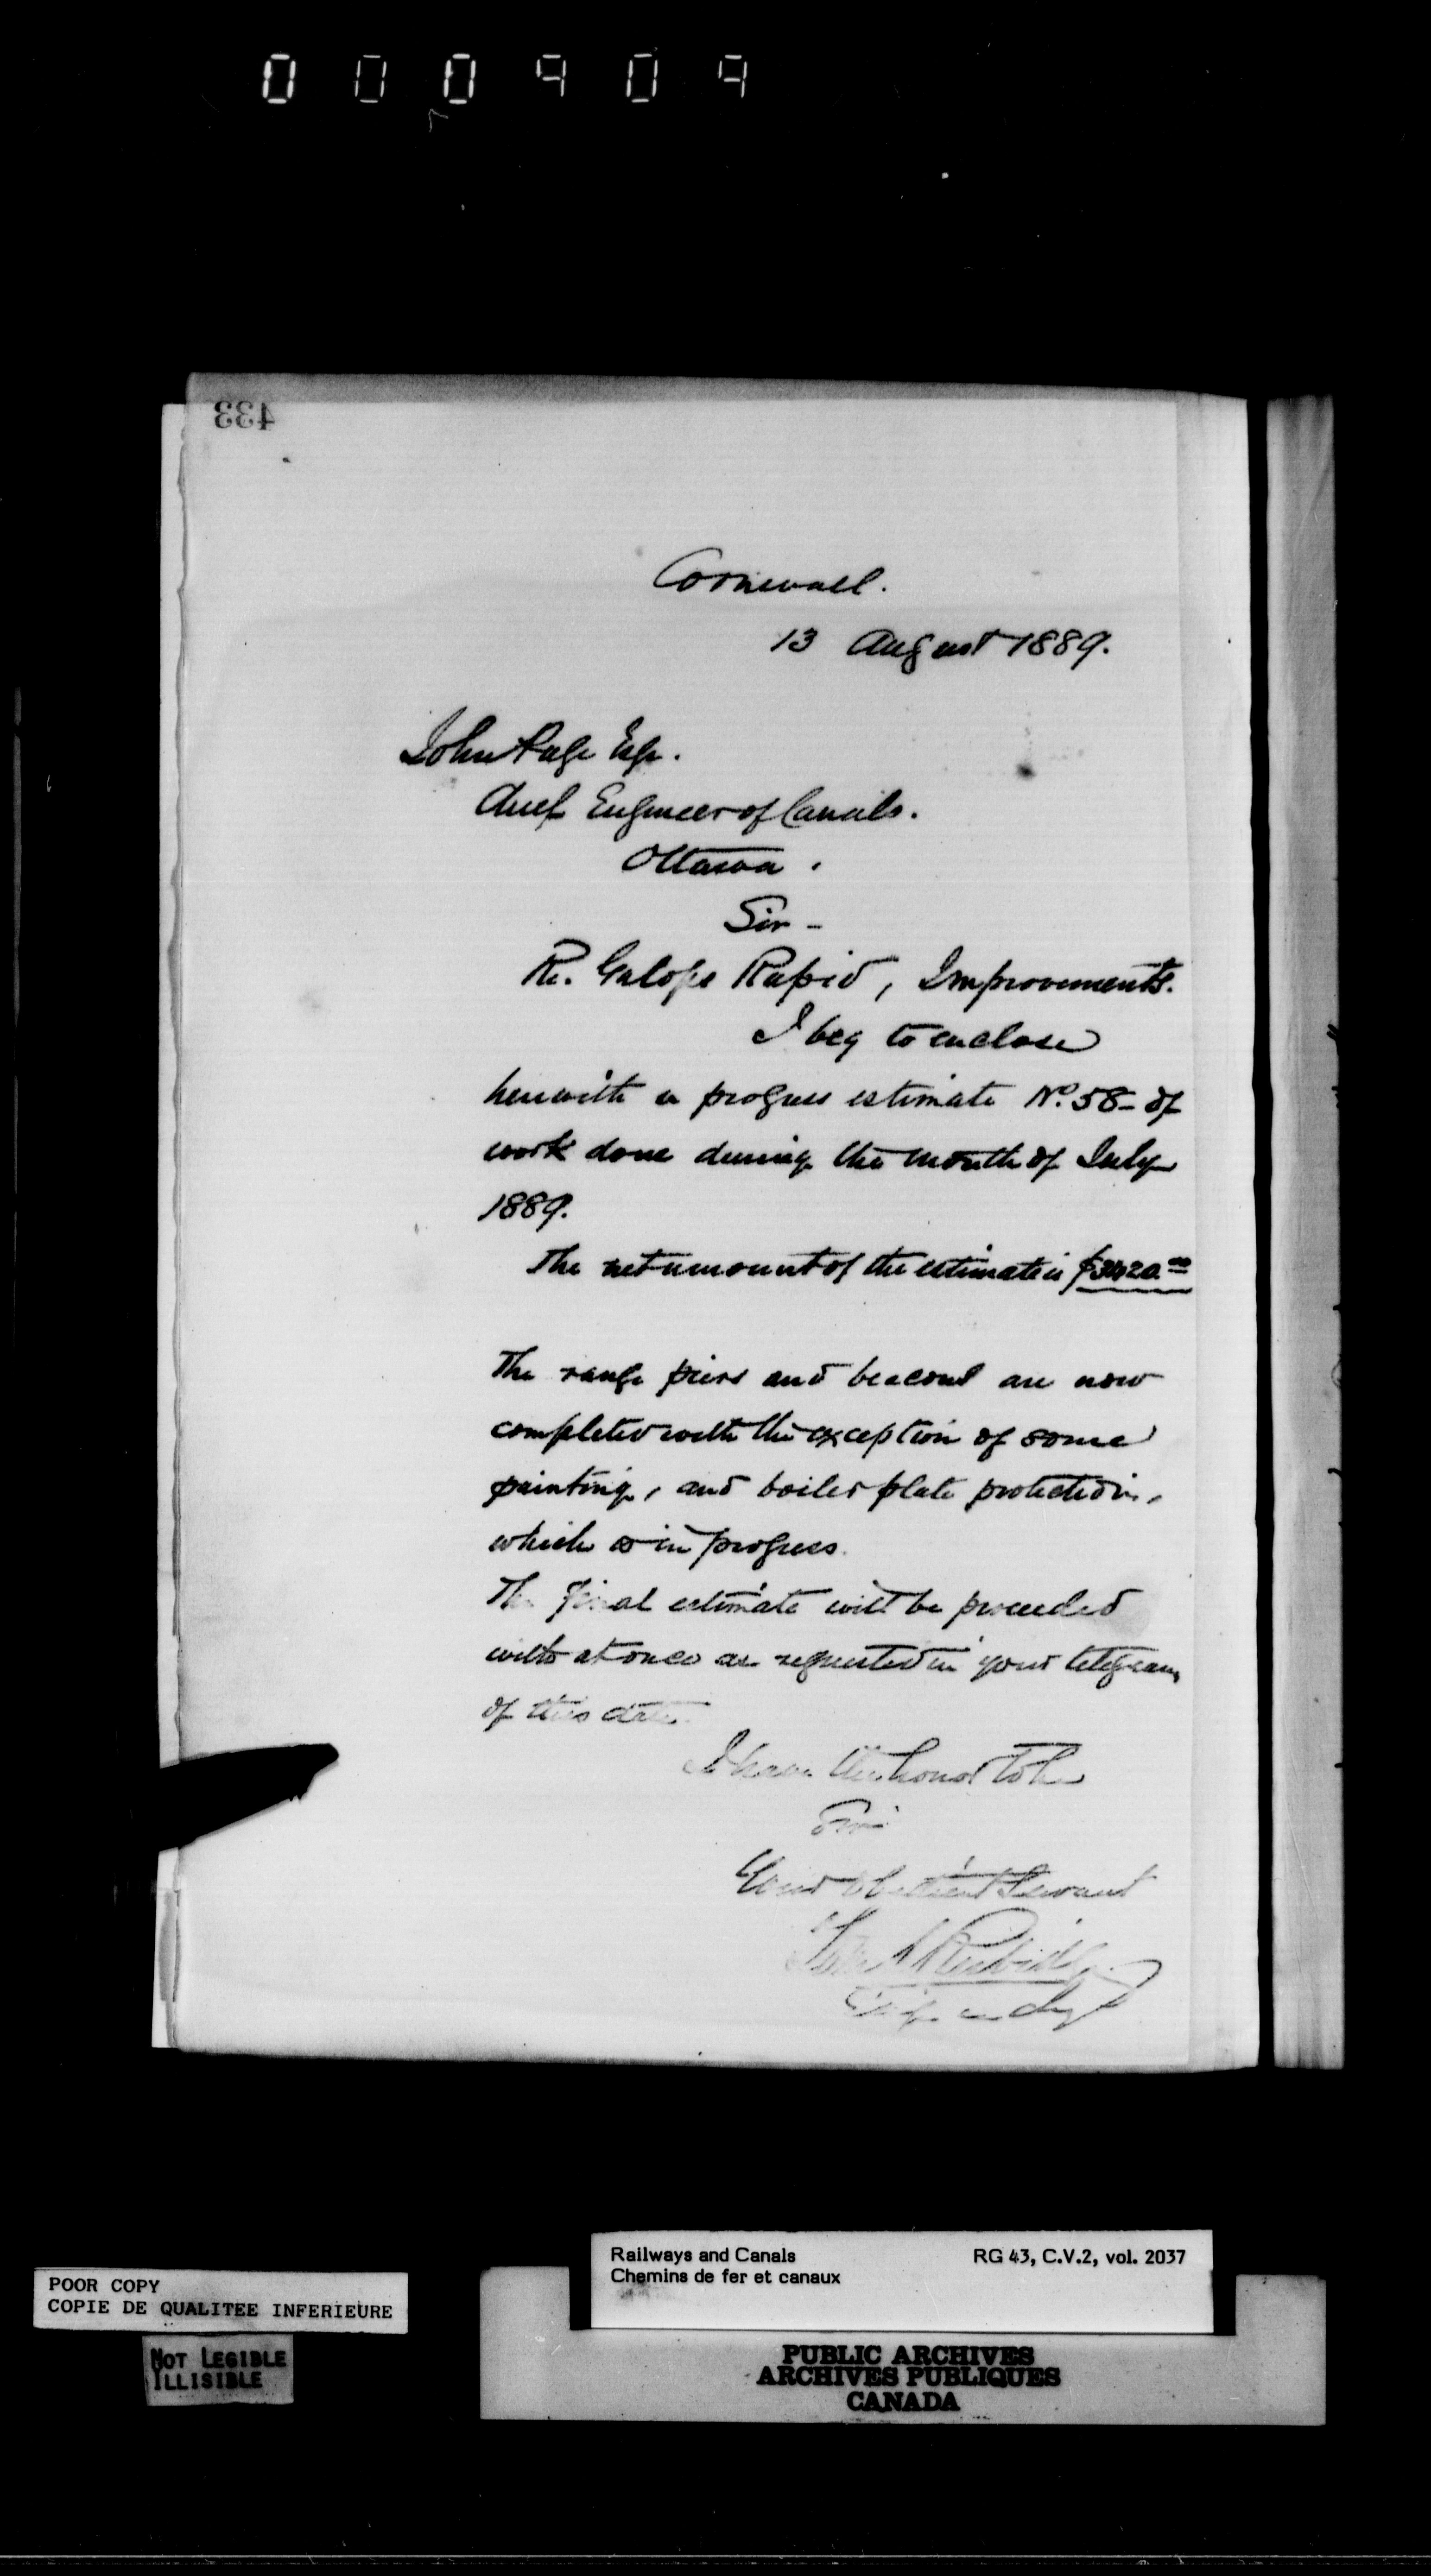 000909
433
Cornwall.
13 August 1889.
John Page Esqr.
Chief Engineer of Canals.
Ottawa.
Sir -
Re. Galops Rapid, Improvements.
I beg to enclose
herewith a progress estimate No. 58 - of
work done during the month of July
1889.
The net amount of the estimate is $3420.00
The range piers and beacons are now
completed with the exception of some
painting, and boiler plate protection,
which is in progress.
The final estimate will be proceeded
with at once as requested in your telegram
of this date.
I have the honor to be
Sir
Your obedient servant
Rubidge
Engr in chg
Railways and Canals
RG 43, C.V.2, vol. 2037
Chemins de fer et canaux
POOR COPY
COPIE DE QUALITEE INFERIEURE
NOT LEGIBLE
ILLISIBLE
PUBLIC ARCHIVES
ARCHIVES PUBLIQUES
CANADA